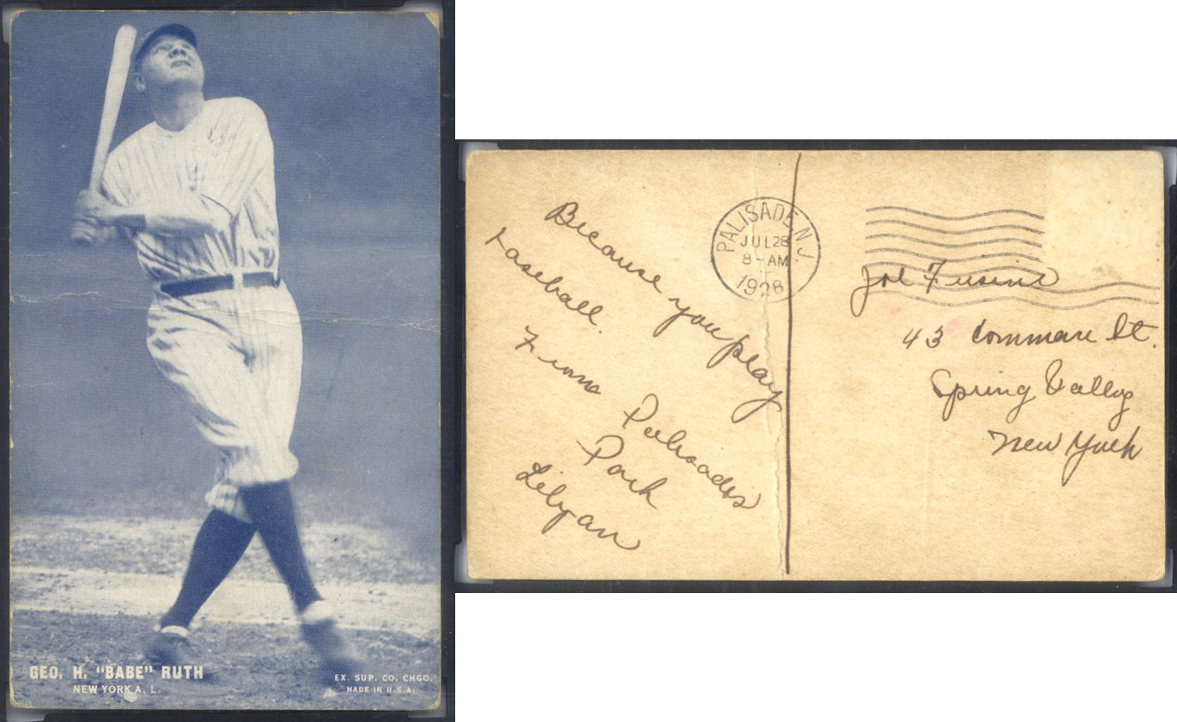 GEO. H. "BABE" RUTH
NEW YORK A. L.
EX. SUP. CO. CHGO.
MADE IN U.S.A.
Because you play
baseball.
From Palisades
Park
Lilyan
PALISADE N.J.
JUL 28
8-AM
1928
Joe
43 St.
Spring Valley
New York